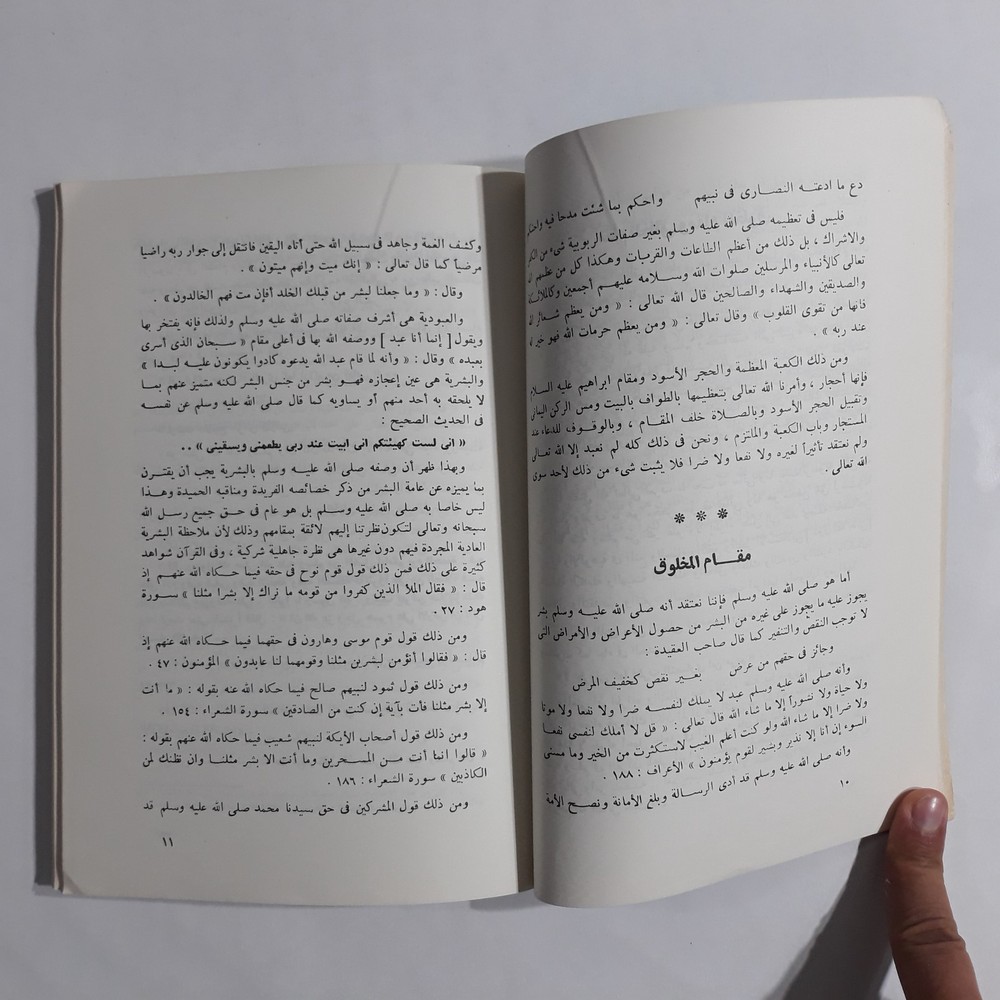 دع ما ادعته النصارى فى نبيهم واحكم بما شئت مدحا فيه
فليس فى تعظيمه صلى الله عليه وسلم بغير صفات الربوبية شىء من
والاشراك ، بل ذلك من أعظم الطاعات والقربات وهكذا كل من عظمهم
تعالى كالأنبياء والمرسلين صلوات الله وسلامه عليهم أجمعين
والصديقين والشهداء والصالحين قال الله تعالى : « ومن يعظم شعائر
فانها من تقوى القلوب » وقال تعالى : « ومن يعظم حرمات الله فهو خير
عند ربه » .
ومن ذلك الكعبة المعظمة والحجر الأسود ومقام ابراهيم عليه السلام
فإنها أحجار ، وأمرنا الله تعالى بتعظيمها بالطواف بالبيت ومس الركن اليمانى
وتقبيل الحجر الأسود وبالصلاة خلف المقام ، وبالوقوف للدعاء عند
المستجار وباب الكعبة والملتزم ، ونحن فى ذلك كله لم نعبد إلا الله تعالى
ولم نعتقد تأثيراً لغيره ولا نفعا ولا ضرا فلا يثبت شىء من ذلك لأحد سوى
الله تعالى .
* * *
مقـام المخلوق
أما هو صلى الله عليه وسلم فإننا نعتقد أنه صلى الله عليه وسلم بشر
يجوز عليه ما يجوز على غيره من البشر من حصول الأعراض والأمراض التى
لا توجب النقص والتنفير كما قال صاحب العقيدة :
وجائز فى حقهم من عرض بغير نقص كخفيف المرض
وأنه صلى الله عليه وسلم عبد لا يملك لنفسه ضرا ولا نفعا ولا موتا
ولا حياة ولا نشوراً إلا ما شاء الله قال تعالى : « قل لا أملك لنفسى نفعا
ولا ضرا إلا ما شاء الله ولو كنت أعلم الغيب لاستكثرت من الخير وما مسنى
السوء إن أنا إلا نذير وبشير لقوم يؤمنون » الأعراف : ١٨٨ .
وأنه صلى الله عليه وسلم قد أدى الرسالة وبلغ الأمانة ونصح الأمة
١٠
وكشف الغمة وجاهد فى سبيل الله حتى أتاه اليقين فانتقل إلى جوار ربه راضيا
مرضياً كما قال تعالى : « إنك ميت وإنهم ميتون » .
وقال : « وما جعلنا لبشر من قبلك الخلد أفإن مت فهم الخالدون » .
والعبودية هى أشرف صفاته صلى الله عليه وسلم ولذلك فإنه يفتخر بها
ويقول [ إنما أنا عبد ] ووصفه الله بها فى أعلى مقام « سبحان الذى أسرى
بعبده » وقال : « وأنه لما قام عبد الله يدعوه كادوا يكونون عليه لبدا »
والبشرية هى عين إعجازه فهو بشر من جنس البشر لكنه متميز عنهم بما
لا يلحقه به أحد منهم أو يساويه كما قال صلى الله عليه وسلم عن نفسه
فى الحديث الصحيح :
« انى لست كهيئتكم انى ابيت عند ربى يطعمنى ويسقينى » . .
وبهذا ظهر أن وصفه صلى الله عليه وسلم بالبشرية يجب أن يقترن
بما يميزه عن عامة البشر من ذكر خصائصه الفريدة ومناقبه الحميدة وهذا
ليس خاصا به صلى الله عليه وسلم بل هو عام فى حق جميع رسل الله
سبحانه وتعالى لتكون نظرتنا إليهم لائقة بمقامهم وذلك لأن ملاحظة البشرية
العادية المجردة فيهم دون غيرها هى نظرة جاهلية شركية ، وفى القرآن شواهد
كثيرة على ذلك فمن ذلك قول قوم نوح فى حقه فيما حكاه الله عنهم إذ
قال : « فقال الملأ الذين كفروا من قومه ما نراك إلا بشرا مثلنا » سورة
هود : ٢٧ .
ومن ذلك قول قوم موسى وهارون فى حقهما فيما حكاه الله عنهم إذ
قال : « فقالوا أنؤمن لبشرين مثلنا وقومهما لنا عابدون » المؤمنون : ٤٧ .
ومن ذلك قول ثمود لنبيهم صالح فيما حكاه الله عنه بقوله : « ما أنت
إلا بشر مثلنا فأت بآية إن كنت من الصادقين » سورة الشعراء : ١٥٤ .
ومن ذلك قول أصحاب الأيكة لنبيهم شعيب فيما حكاه الله عنهم بقوله :
« قالوا انما أنت من المسحرين وما أنت الا بشر مثلنا وان نظنك لمن
الكاذبين » سورة الشعراء : ١٨٦ .
ومن ذلك قول المشركين فى حق سيدنا محمد صلى الله عليه وسلم قد
١١